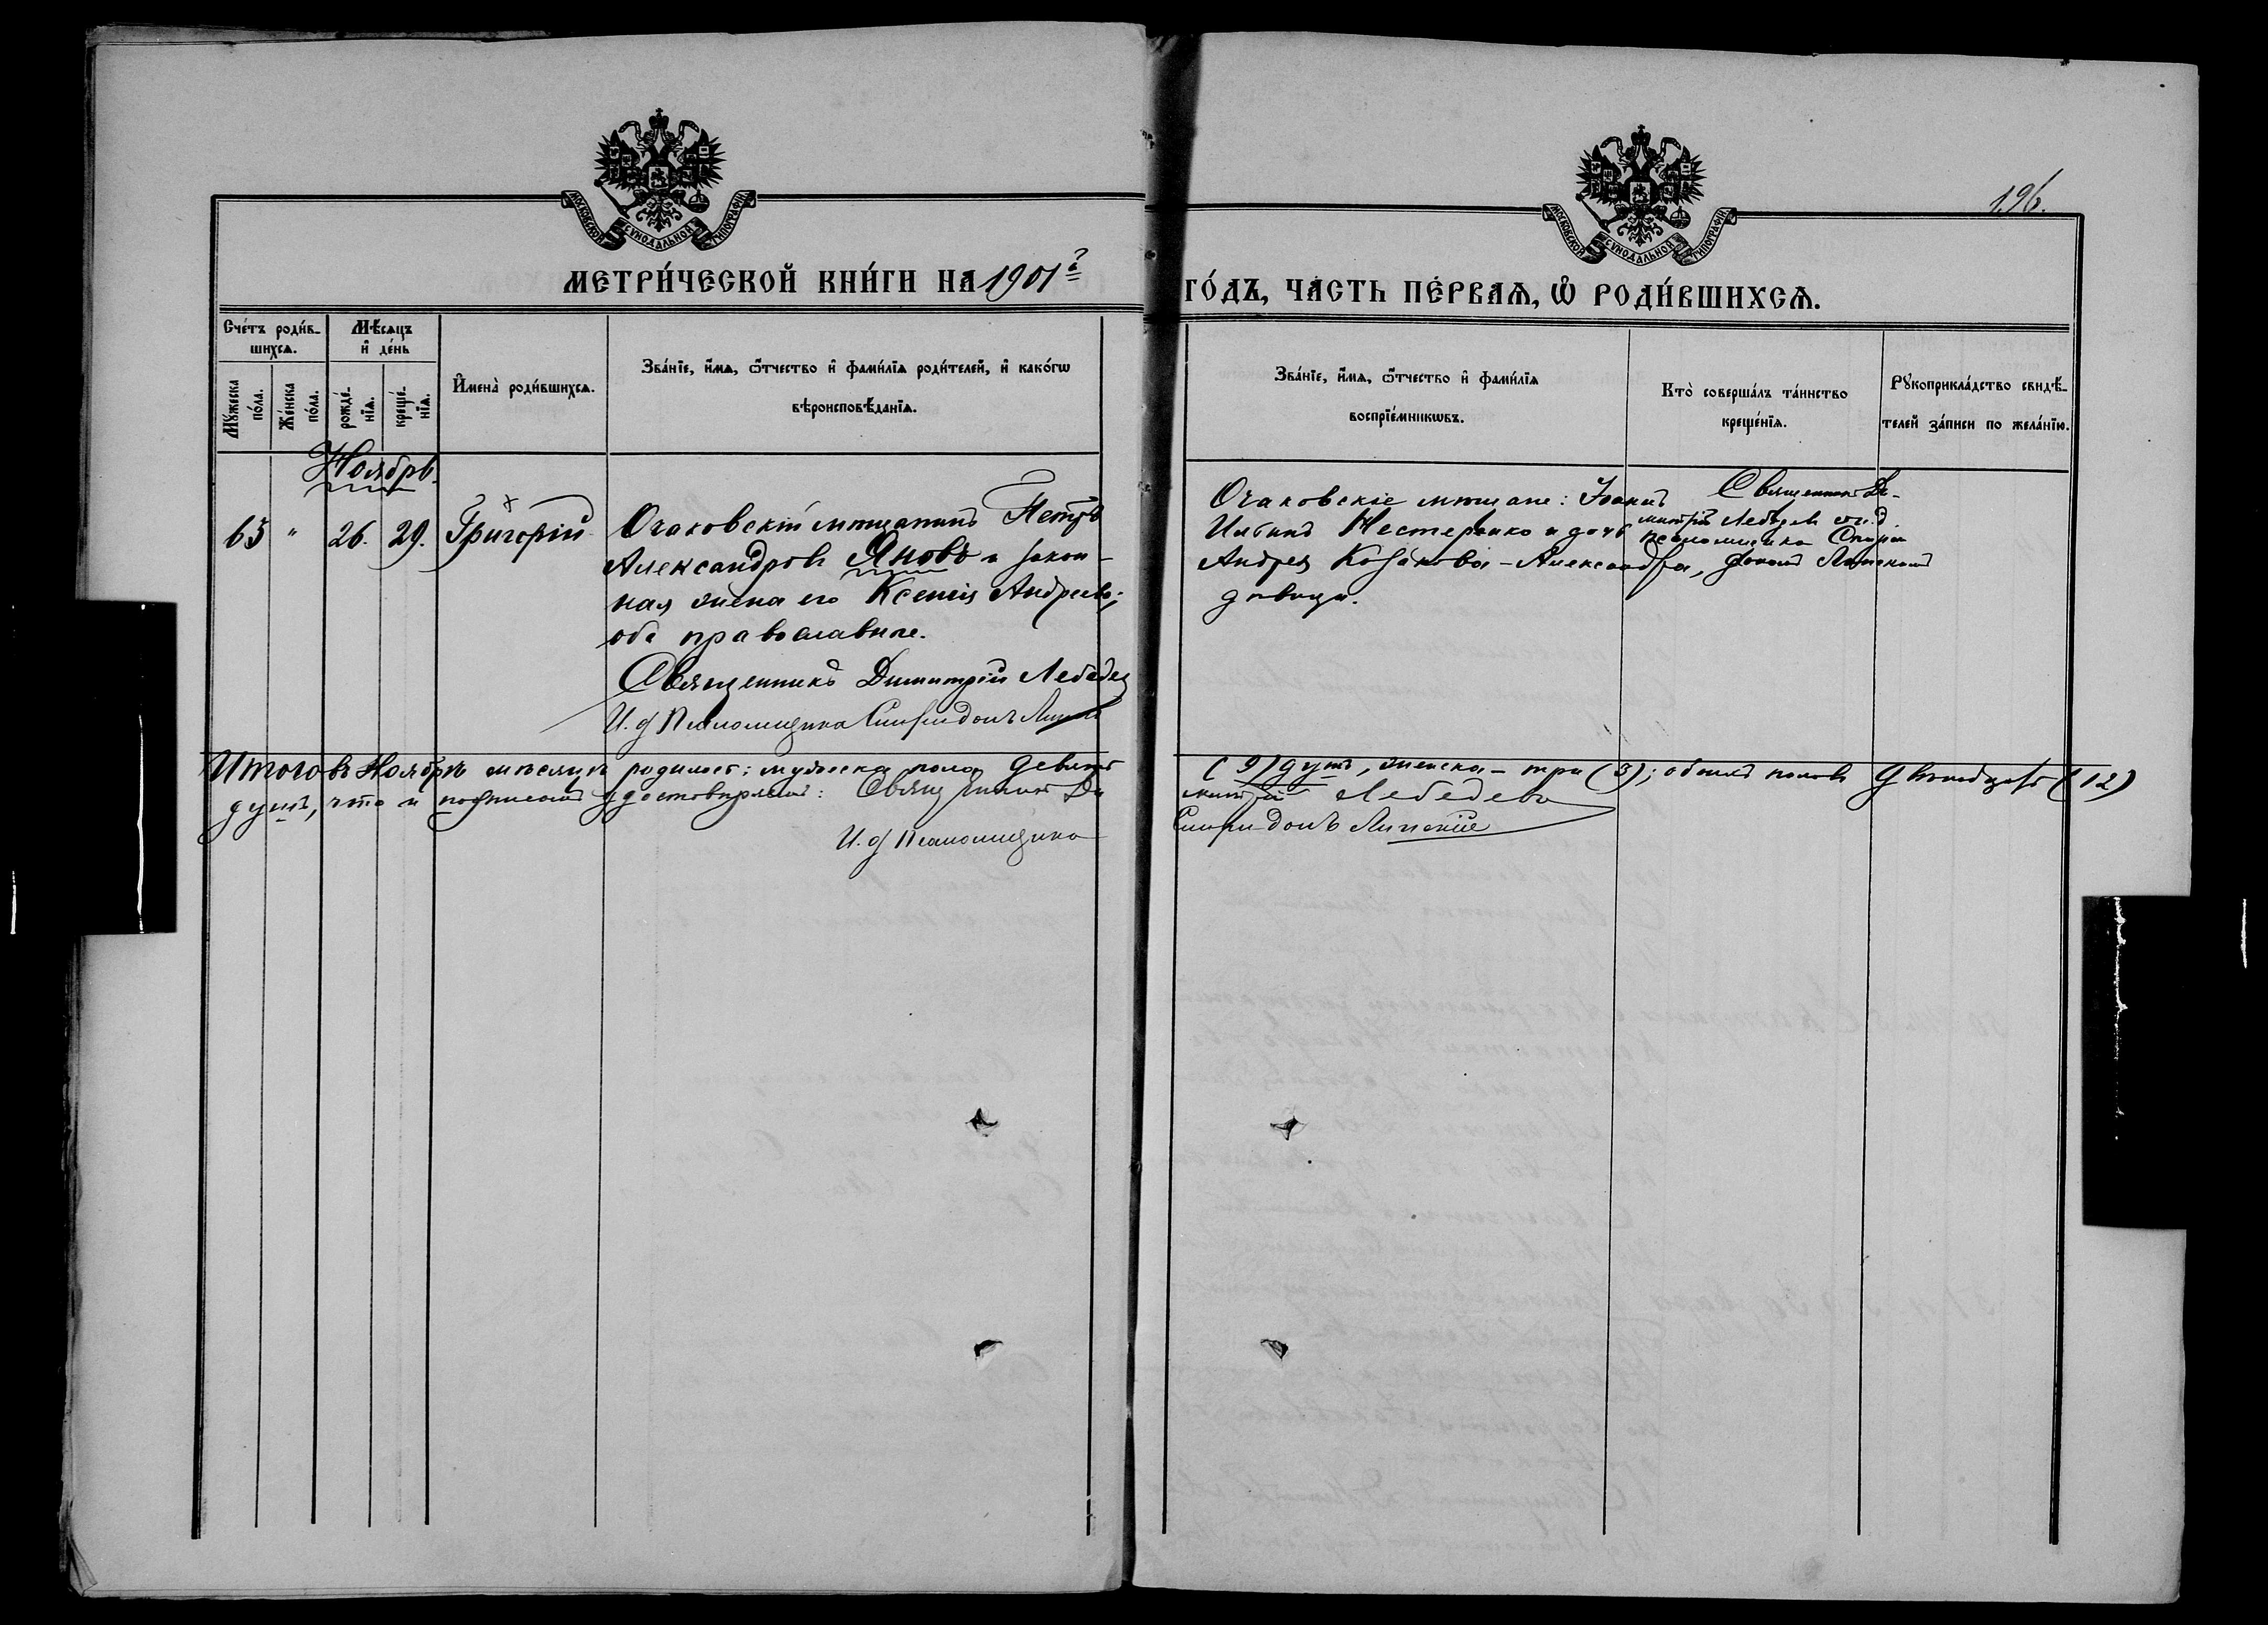 196.
МОСКОВСКОЙ СѴНОДАЛЬНОЙ ТИПОГРАФІИ
МОСКОВСКОЙ СѴНОДАЛЬНОЙ ТИПОГРАФІИ
МЕТРИ́ЧЕСКОЙ КНИ́ГИ НА 1901й
ГО́ДЪ, ЧА́СТЬ ПЕ́РВАѦ, Ѽ РОДИ́ВШИХСѦ.
Сче́тъ роди́в-
шихсѧ.
Мѣ́сѧцъ
и҆ де́нь
Мꙋ́жеска
по́ла.
Же́нска
по́ла.
рожде́-
нїѧ.
креще́-
нїѧ.
И҆мена̀ роди́вшихсѧ.
Зва́нїе, и҆́мѧ, ѻ҆́тчество и҆ фами́лїѧ роди́телей, и҆ како́гѡ
вѣроисповѣ́данїѧ.
Зва́нїе, и҆́мѧ, ѻ҆́тчество и҆ фами́лїѧ
воспрїе́мникѡвъ.
Кто̀ соверша́лъ та́инство
креще́нїѧ.
Рꙋкоприкла́дство свидѣ́-
телей за́писи по жела́нїю.
Ноябрь.
63 " 26. 29. Григорій
Очаковскій мѣщанинъ Петръ
Александровъ Яновъ и закон-
ная жена его Ксенія Андреева;
оба православные.
Священникъ Димитрій Лебедев
И. д Псаломщика Спиридонъ
Очаковскіе мѣщане: Іоаннъ
Нестеренко и дочь
Андрея Козакова - Александра,
дѣвица.
Священникъ Ди-
митрій Лебедевъ и и.д.
псаломщика Спири-
донъ Липскій
Итого въ Ноябрѣ мѣсяцѣ родилось: мужеска пола девять
(9) душъ, женска - три (3); обоихъ половъ двѣнадцать (12)
душъ, что и подписомъ удостовѣряемъ: Священникъ Ди
митрій Лебедевъ
И. д Псаломщика
Спиридонъ Липскій